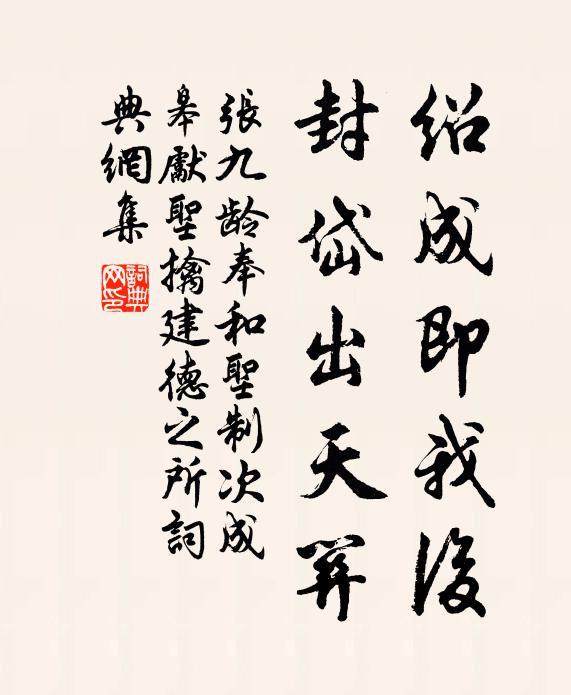 绍成即我後
封岱出天關
張九龄奉和聖制次成
皋獻聖擒建德之所詞
典網集
詞典网印